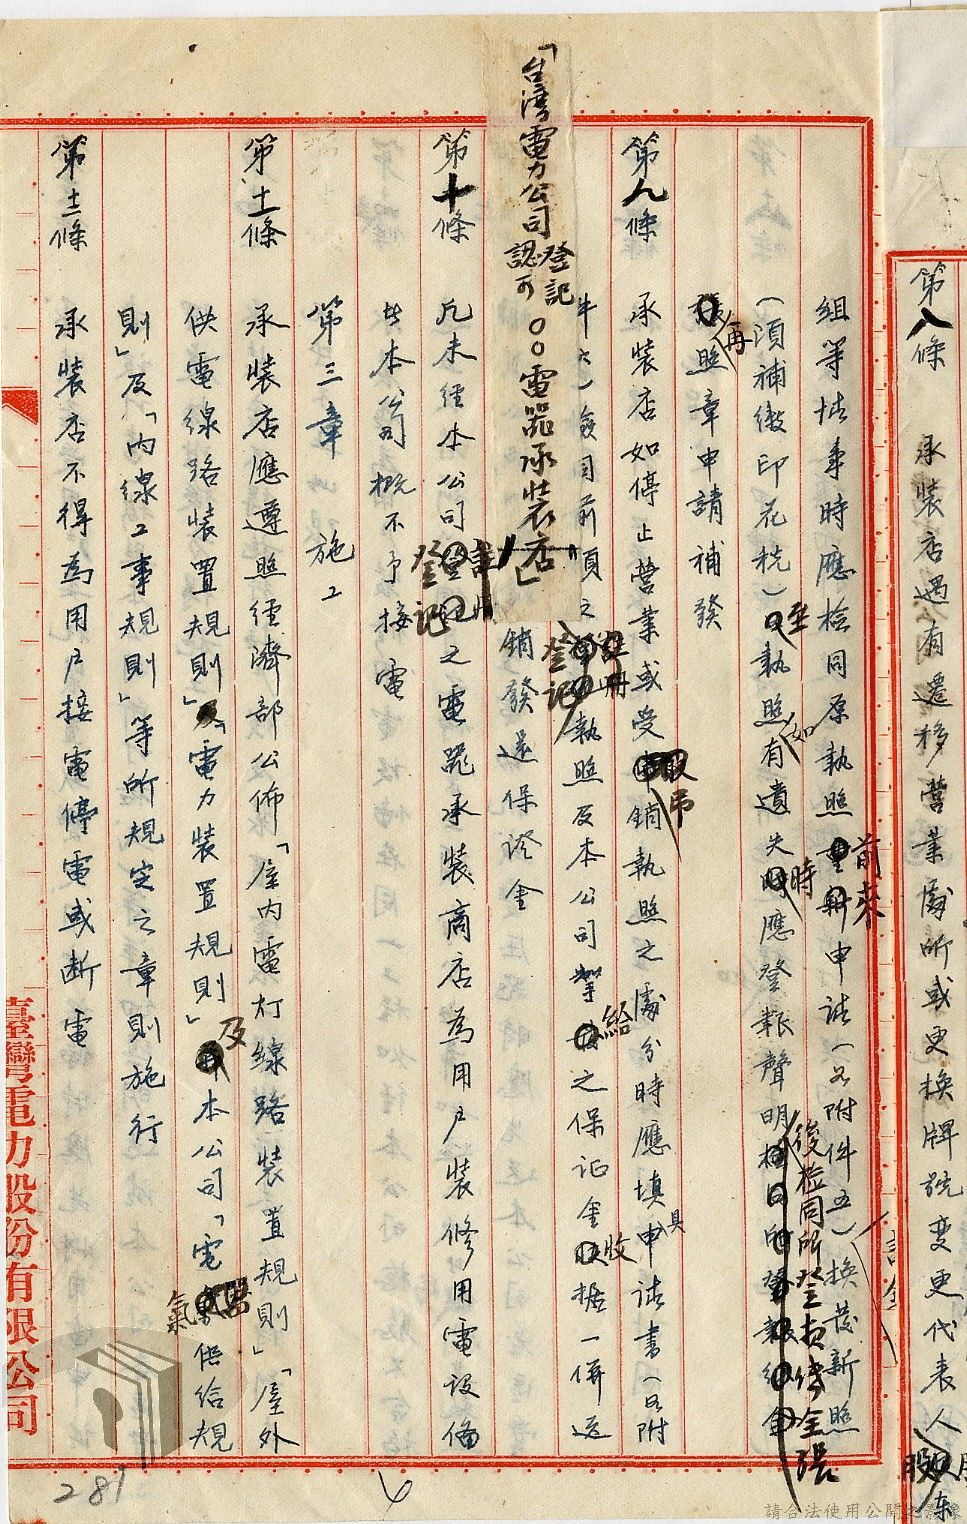 第八條　承裝店遇有遷移營業處所或更換牌號變更代表人股東
組等情事時應檢同原執照前來申請（另附件五）換發新照
（須補繳印花稅）至執照如有遺失時應登報聲明後檢同所登報全張
再照章申請補發
第九條　承裝店如停止營業或受吊銷執照之處分時應填具申請書（另附
件六）繳回前項之登記執照及本公司給之保証金收據一併送
銷發還保證金
「台灣電力公司登記認可〇〇電器承裝店」
第十條　凡未經本公司登記之電器承裝商店為用戶裝修用電設備
者本公司概不予接電
第三章　施工
第十一條　承裝店應遵照經濟部公佈「屋內電灯線路裝置規則」「屋外
供電線路裝置規則」「電力裝置規則」及本公司「電氣供給規
則」及「內線工事規則」等所規定之章則施行
第十二條　承裝店不得為用戶接電停電或斷電
臺灣電力股份有限公司
281
請合法使用公開之影像